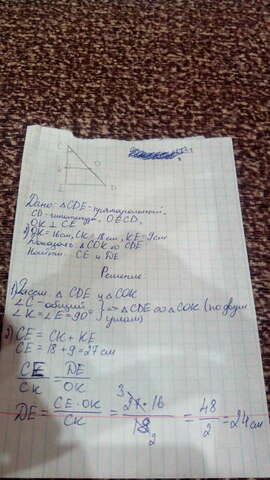 C
K
O
E
D
Дано: △CDE - прямоугольный,
CD - гипотенуза, O∈CD,
OK ⊥ CE
OK = 16см, CK = 18см, KE = 9см
Доказать △COK ∾ CDE
Найти CE и DE
Решение
1) Рассм △CDE и △COK
∠C - общий
∠K = ∠E = 90° } => △CDE ∾ △COK (по двум углам)
2) CE = CK + KE
CE = 18 + 9 = 27 см
CE/CK = DE/OK
DE = CE·OK/CK = 27·16/18 = 48/2 = 24 см
3
2